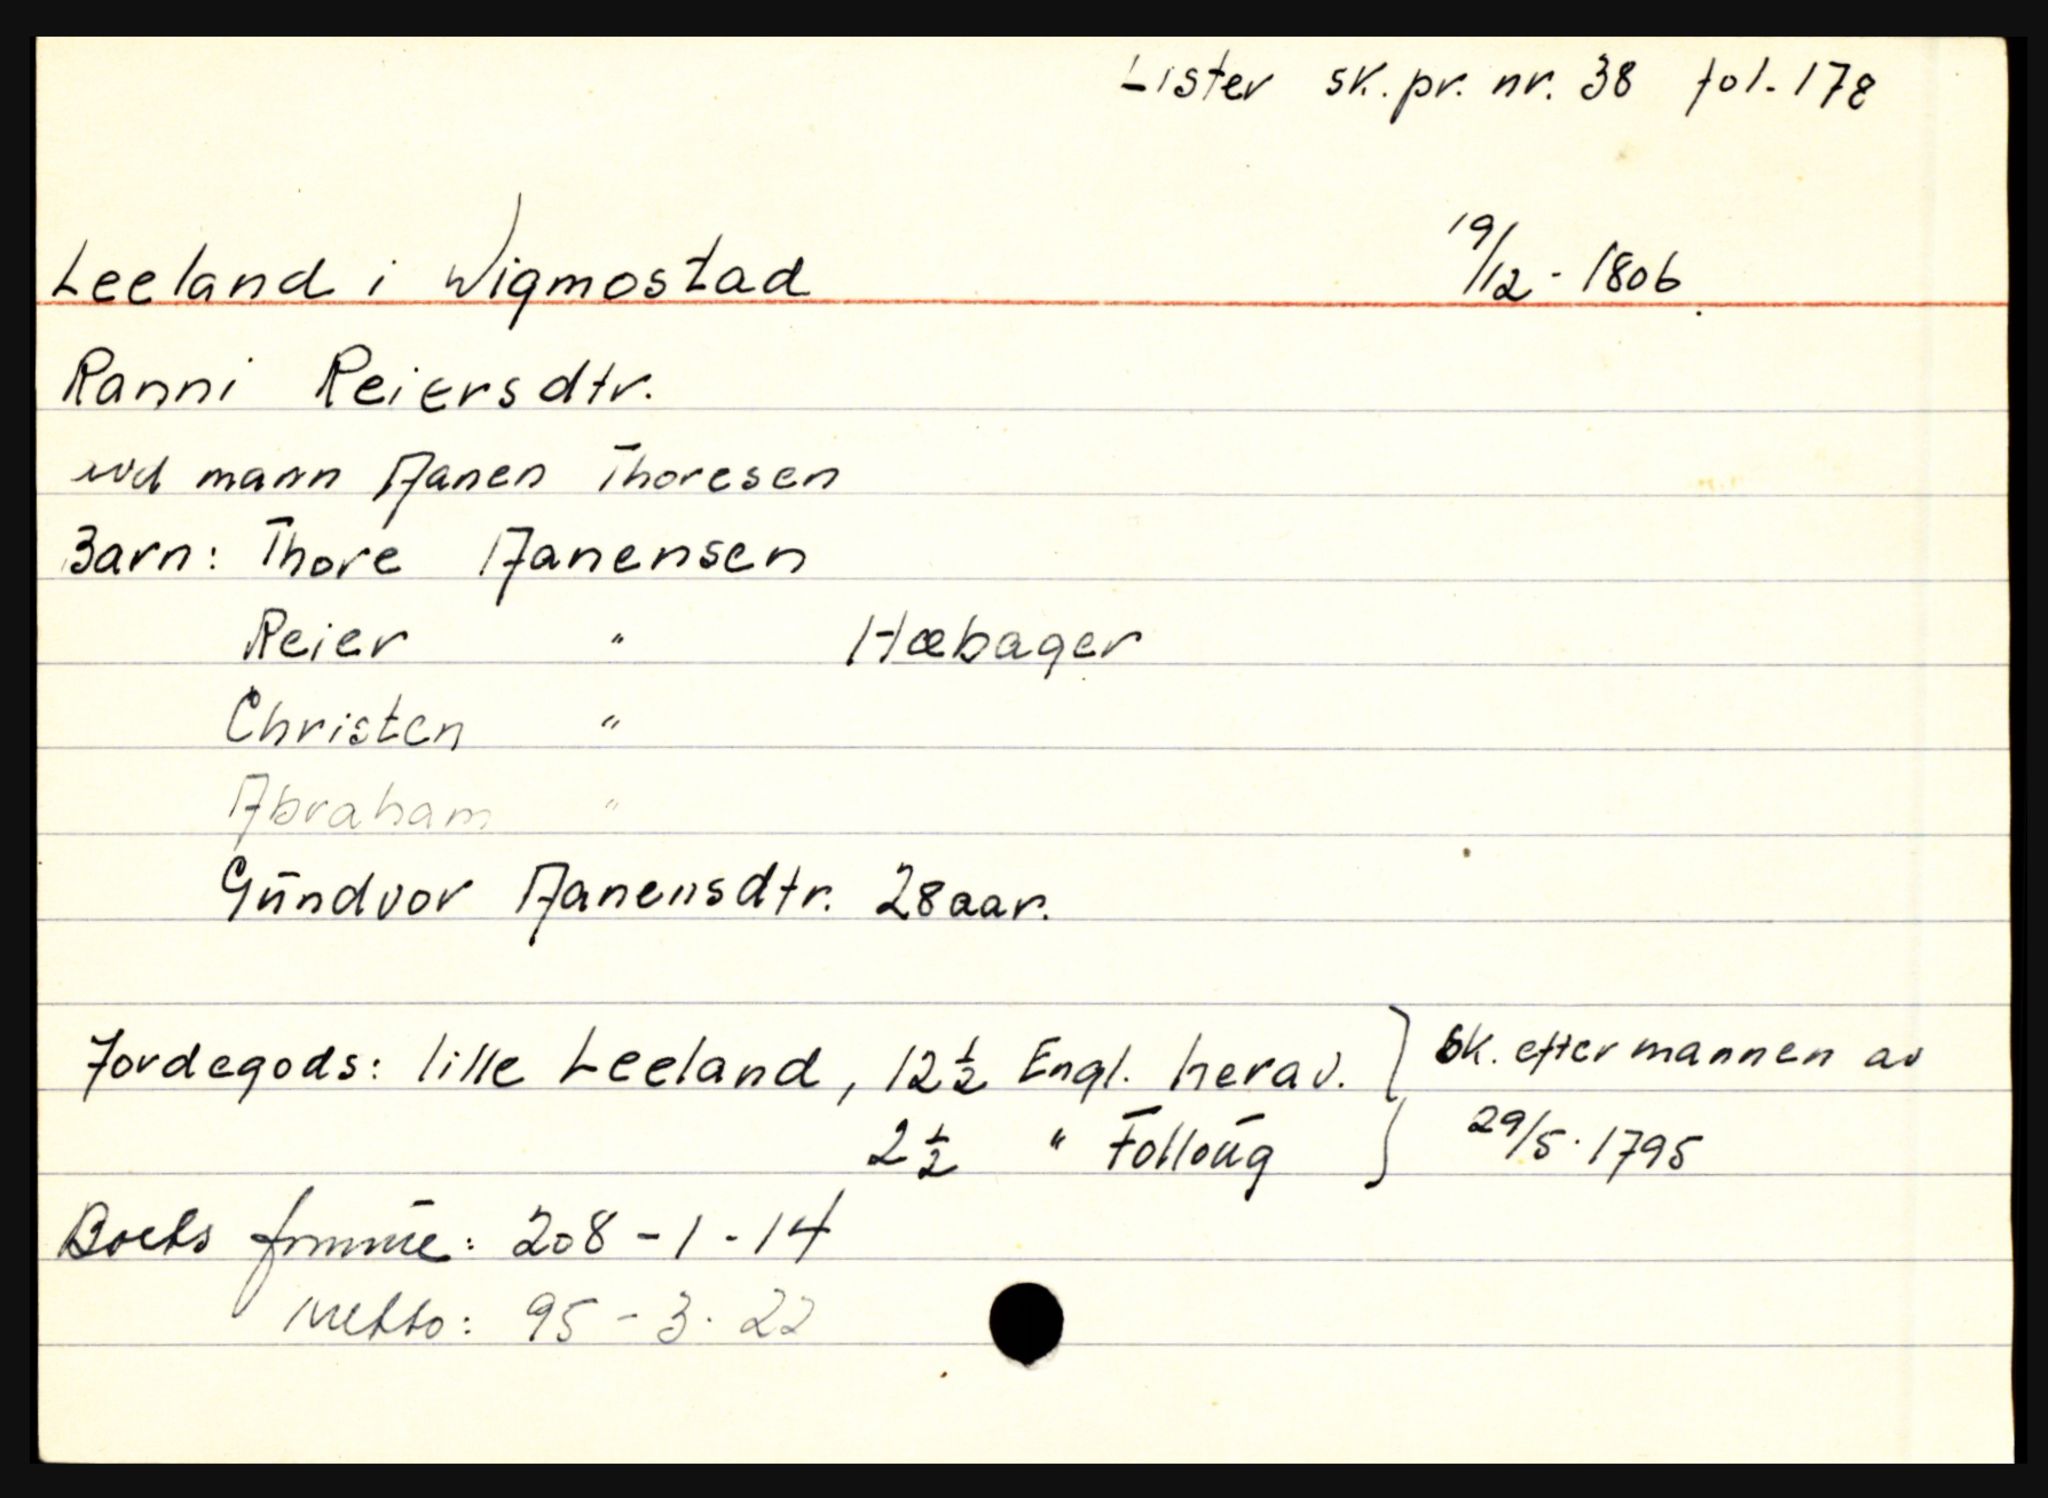 Lister sk. pr. nr. 38 fol. 178
Leeland i Wigmostad 19/12 - 1806
Ranni Reiersdtr.
mann Aanen Thoresen
Barn: Thore Aanensen
Reier " Hæbager
Christen "
Abraham "
Gūndvor Aanensdtr. 28 aar.
Jordegods: lille Leeland, 12 1/2 Engl. herav. } Sk. efter mannen av
2 1/2 " Folloūg } 29/5. 1795
Boets : 208 - 1 - 14
Netto: 95 - 3 - 22